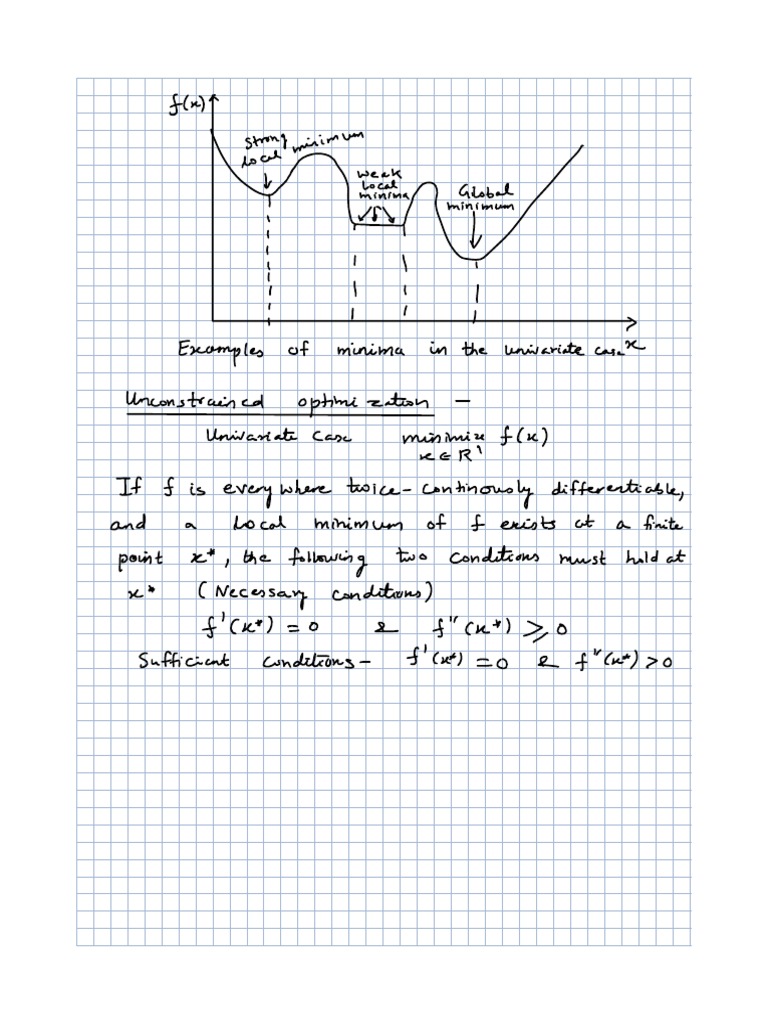 f(x)
Strong local minimum
Weak
Local
minima
Global
minimum
x
Examples of minima in the univariate case
Unconstrained optimization —
Univariate case minimize f(x)
x ∈ R¹
If f is everywhere twice-continously differentiable,
and a local minimum of f exists at a finite
point x*, the following two conditions must hold at
x* (Necessary conditions)
f'(x*) = 0 & f''(x*) ⩾ 0
Sufficient conditions - f'(x*) = 0 & f''(x*) > 0